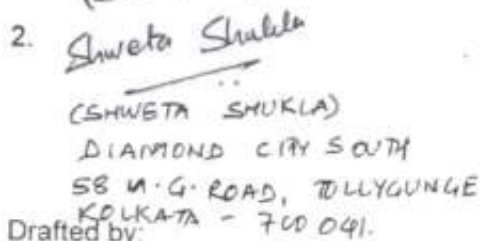 2.
Shweta Shukla
(SHWETA SHUKLA)
DIAMOND CITY SOUTH
58 M.G. ROAD, TOLLYGUNGE
KOLKATA - 700 041.
Drafted by: